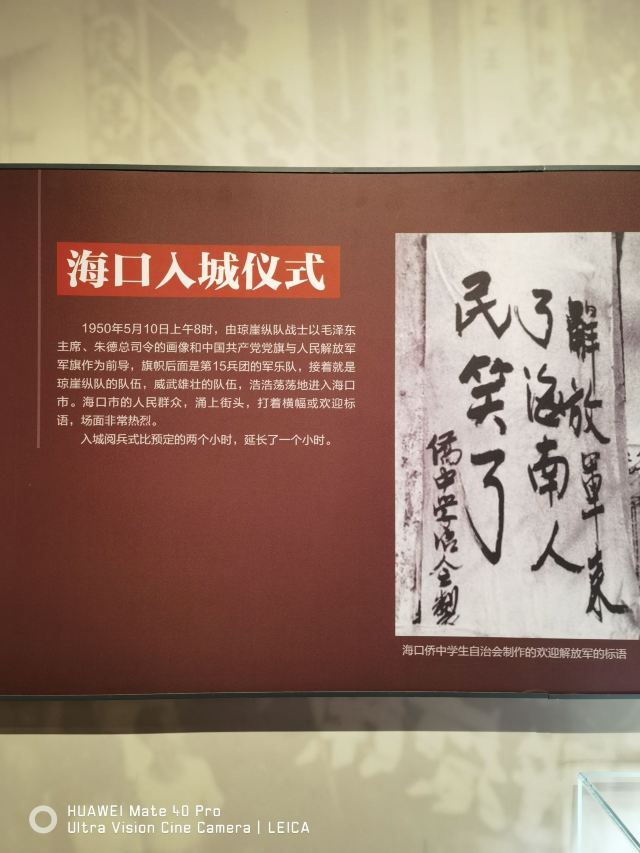 海口入城仪式
1950年5月10日上午8时，由琼崖纵队战士以毛泽东
主席、朱德总司令的画像和中国共产党党旗与人民解放军
军旗作为前导，旗帜后面是第15兵团的军乐队，接着就是
琼崖纵队的队伍，威武雄壮的队伍，浩浩荡荡地进入海口
市。海口市的人民群众，涌上街头，打着横幅或欢迎标
语，场面非常热烈。
入城阅兵式比预定的两个小时，延长了一个小时。
解放軍来
了海南人
民笑了
僑中学活会製
海口侨中学生自治会制作的欢迎解放军的标语
HUAWEI Mate 40 Pro
Ultra Vision Cine Camera | LEICA